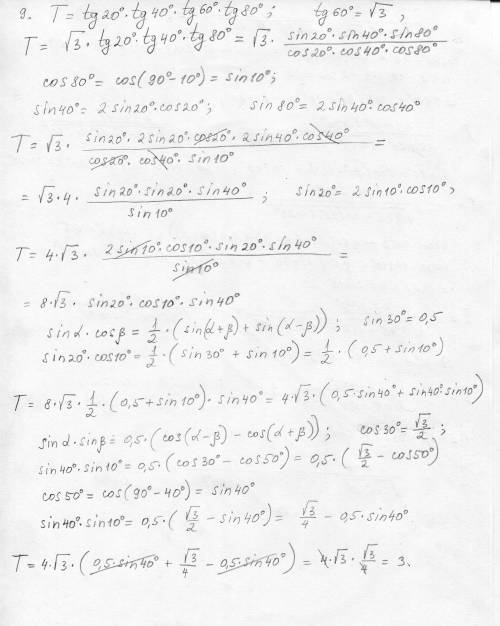 9. T = tg20°·tg40°·tg60°·tg80°; tg60° = √3 ,
T = √3·tg20°·tg40°·tg80° = √3 · (sin20°·sin40°·sin80°)/(cos20°·cos40°·cos80°)
cos80° = cos(90°-10°) = sin10°;
sin40° = 2sin20°·cos20°; sin80° = 2sin40°·cos40°
T = √3 · (sin20°·2sin20°·cos20°·2sin40°·cos40°)/(cos20°·cos40°·sin10°) =
= √3·4 · (sin20°·sin20°·sin40°)/(sin10°) ; sin20° = 2sin10°·cos10°,
T = 4·√3 · (2sin10°·cos10°·sin20°·sin40°)/(sin10°) =
= 8·√3 · sin20°·cos10°·sin40°
sinα·cosβ = 1/2·(sin(α+β) + sin(α-β)) ; sin30° = 0,5
sin20°·cos10° = 1/2·(sin30° + sin10°) = 1/2·(0,5 + sin10°)
T = 8·√3·1/2·(0,5+sin10°)·sin40° = 4·√3·(0,5·sin40° + sin40°·sin10°)
sinα·sinβ = 0,5·(cos(α-β) - cos(α+β)); cos30° = √3/2 ;
sin40°·sin10° = 0,5·(cos30° - cos50°) = 0,5·(√3/2 - cos50°)
cos50° = cos(90°-40°) = sin40°
sin40°·sin10° = 0,5·(√3/2 - sin40°) = √3/4 - 0,5·sin40°
T = 4·√3·(0,5·sin40° + √3/4 - 0,5·sin40°) = 4·√3·√3/4 = 3.